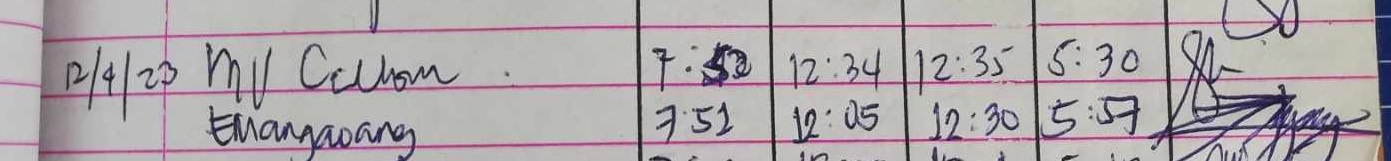 12/4/23 MV Callom 7:52 12:34 12:35 5:30
EMangaoang 7:51 12:05 12:30 5:57